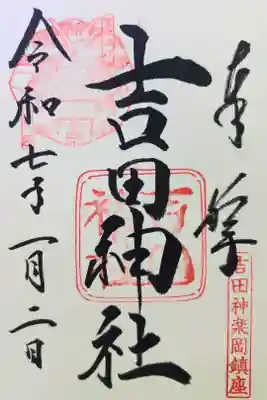 奉拝
吉田神社
令和七年一月二日
吉田神楽岡鎮座